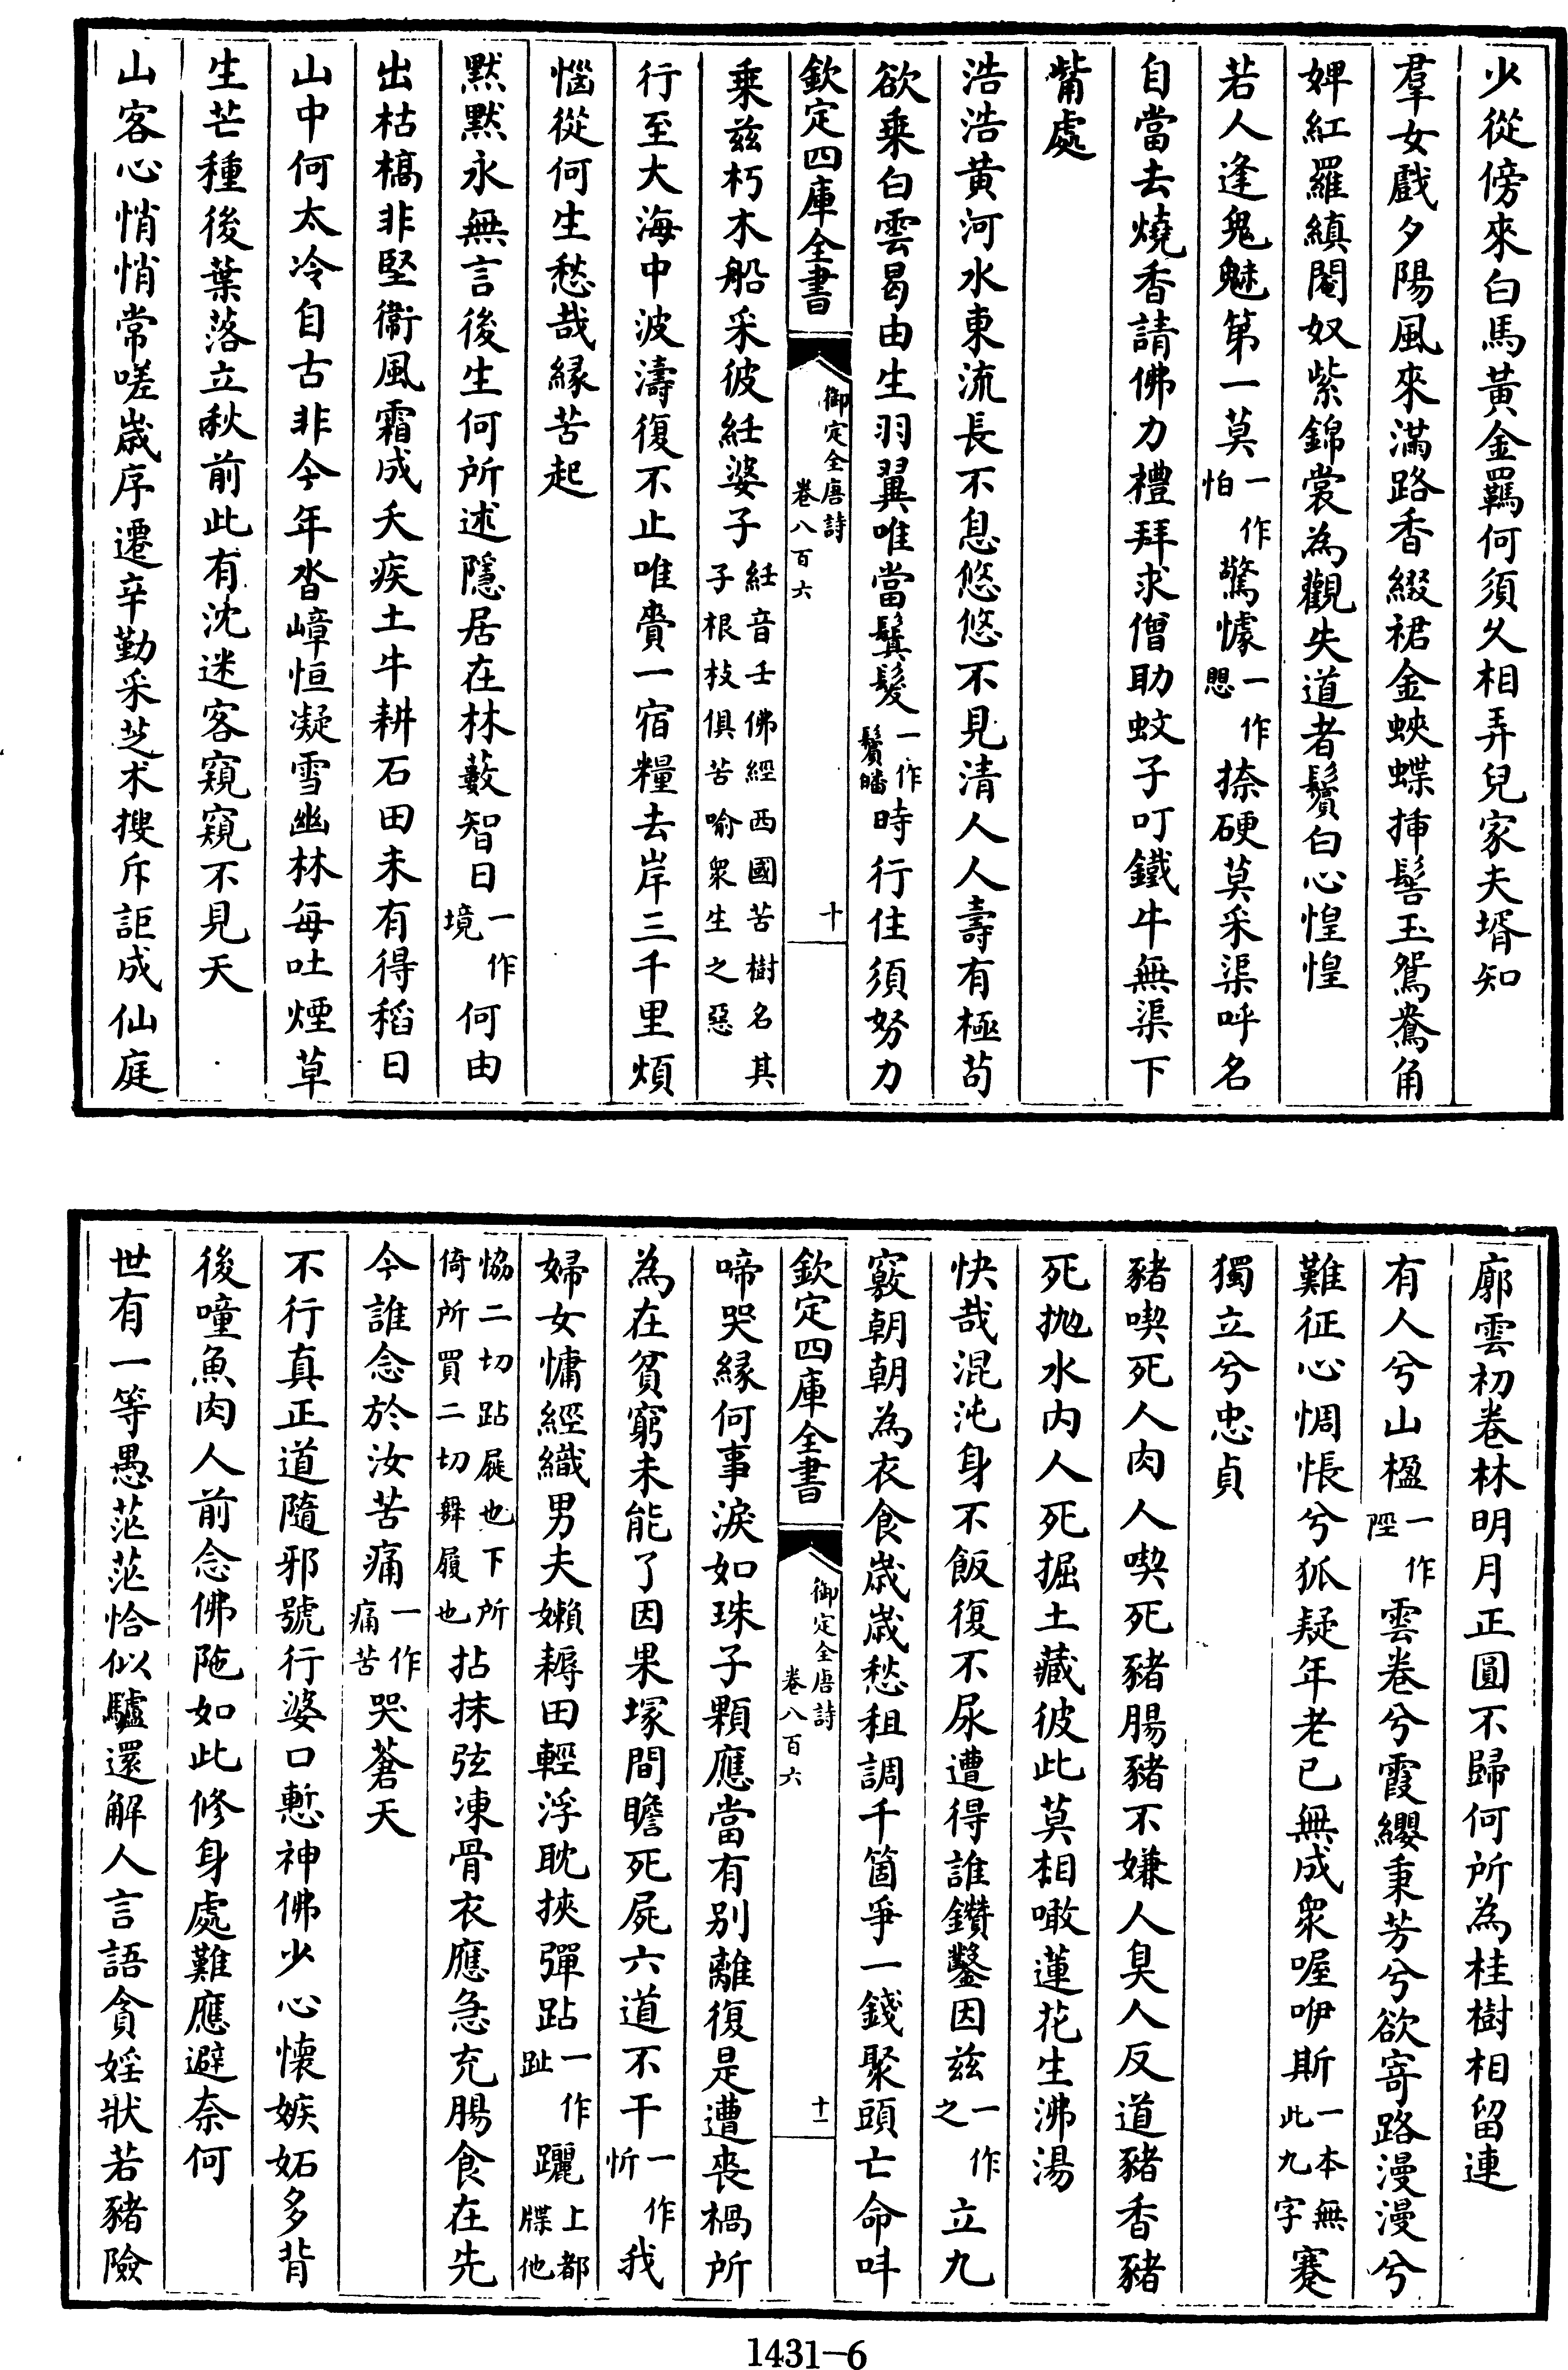 少從傍來白馬黃金羈何須久相弄兒家夫壻知
羣女戲夕陽風來滿路香綴裙金蛺蝶揷髻玉鴛鴦角
婢紅羅縝閹奴紫錦裳為觀失道者鬢白心惶惶
若人逢鬼魅第一莫一作怕驚懅一作愳捺硬莫采渠呼名
自當去燒香請佛力禮拜求僧助蚊子叮鐵牛無渠下
觜處
浩浩黃河水東流長不息悠悠不見清人人壽有極苟
欲乘白雲曷由生羽翼唯當鬒髮一作鬢皤時行住須努力
欽定四庫全書
御定全唐詩
卷八百六
十
乗茲朽木船采彼紝婆子紝音壬佛經西國苦樹名其子根枝俱苦喻衆生之惡
行至大海中波濤復不止唯賫一宿糧去岸三千里煩
惱從何生愁哉緣苦起
默默永無言後生何所述隱居在林藪智日一作境何由
出枯槁非堅衞風霜成夭疾土牛耕石田未有得稻日
山中何太冷自古非今年沓嶂恒凝雪幽林每吐煙草
生芒種後葉落立秋前此有沈迷客窺窺不見天
山客心悄悄常嗟歲序遷辛勤采芝朮搜斥詎成仙庭
廓雲初卷林明月正圓不歸何所為桂樹相留連
有人兮山楹一作陘雲卷兮霞纓秉芳兮欲寄路漫漫兮
難征心惆悵兮狐疑年老已無成衆喔咿斯一本無此九字蹇
獨立兮忠貞
豬喫死人肉人喫死豬腸豬不嫌人臭人反道豬香豬
死抛水內人死掘土藏彼此莫相噉蓮花生沸湯
快哉混沌身不飯復不尿遭得誰鑽鑿因茲一作之立九
竅朝朝為衣食歲歲愁租調千箇爭一錢聚頭亡命叫
欽定四庫全書
御定全唐詩
卷八百六
十一
啼哭緣何事淚如珠子顆應當有别離復是遭喪禍所
為在貧窮未能了因果塚間瞻死屍六道不干一作忻我
婦女慵經織男夫嬾耨田輕浮耽挾彈跕一作趾躧上都牒他
協二切跕屣也下所倚所買二切舞履也拈抹弦凍骨衣應急充腸食在先
今誰念於汝苦痛一作痛苦哭蒼天
不行真正道隨邪號行婆口慙神佛少心懷嫉妬多背
後噇魚肉人前念佛陁如此修身處難應避奈何
世有一等愚茫茫恰似驢還解人言語貪婬狀若豬險
1431—6